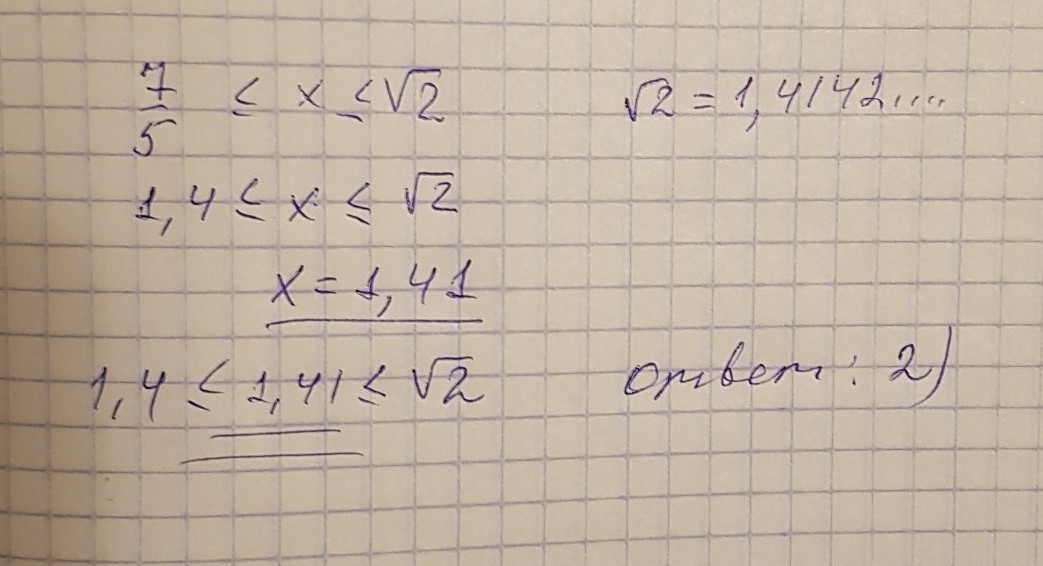 7/5 ≤ x ≤ √2
√2 = 1,4142....
1,4 ≤ x ≤ √2
x = 1,41
1,4 ≤ 1,41 ≤ √2
ответ: 2)